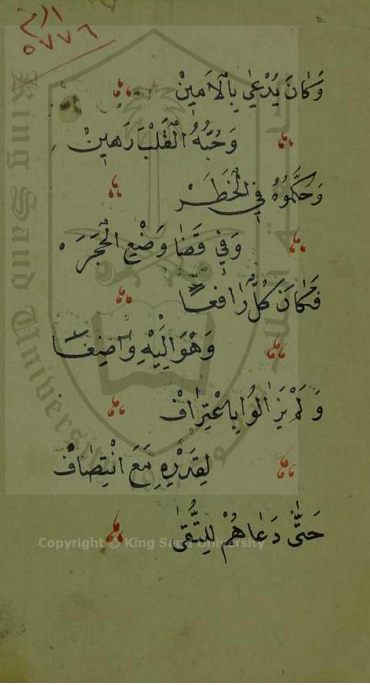 ٥٧٧٦
وَكَانَ يُدْعَى بِالْاَمِينْ
وَحُبُّهُ الْقَلْبَ رَهِينْ
وَحَكَّمُوهُ فِي الْخَطَرْ
وَفِي قَضَا وَضْعِ الْحَجَرْ
فَكَانَ كُلٌّ رَافِعًا
وَهْوَ اِلَيْهِ وَاضِعًا
وَلَمْ يَزَالُوا بِاعْتِرَافْ
لِقَدْرِهِ مَعَ انْتِصَافْ
حَتَّى دَعَاهُمْ لِلتُّقَى
King Saud University
Copyright © King Saud University